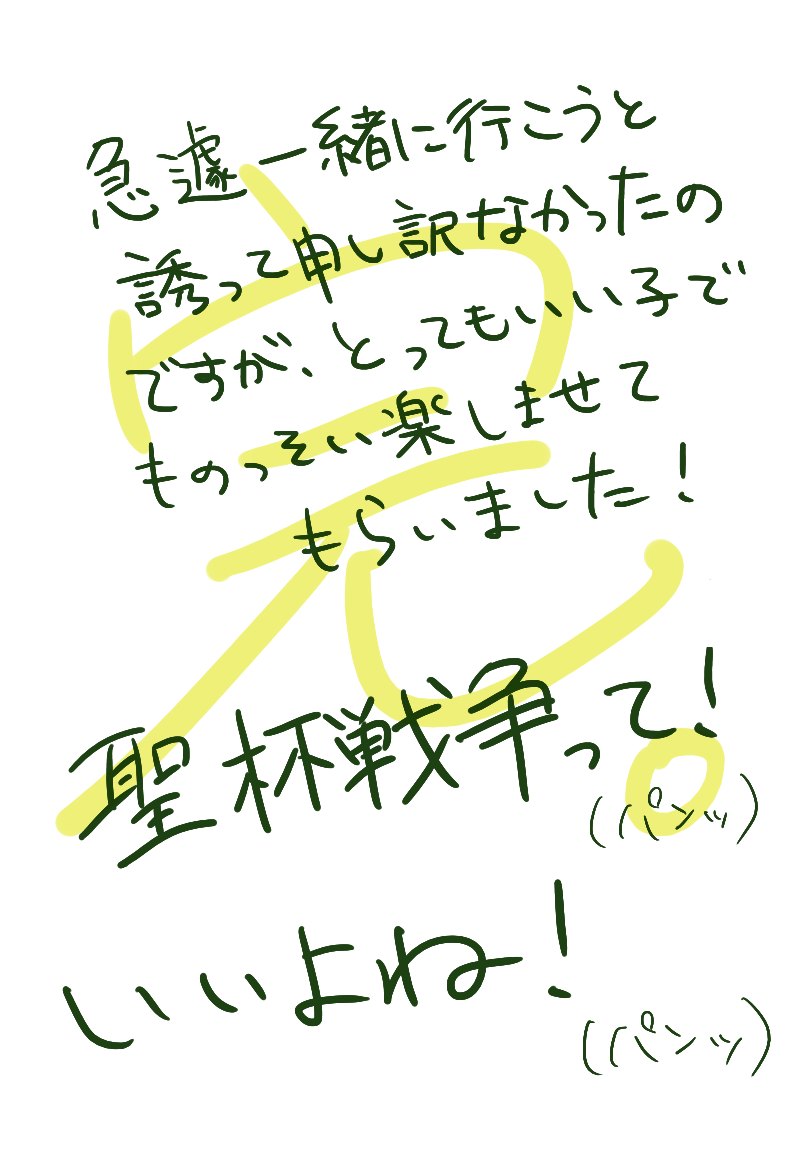 完。
急遽一緒に行こうと
誘って申し訳なかったの
ですが、とってもいい子で
ものっそい楽しませて
もらいました!
聖杯戦争って!
(パンッ)
いいよね!
(パンッ)